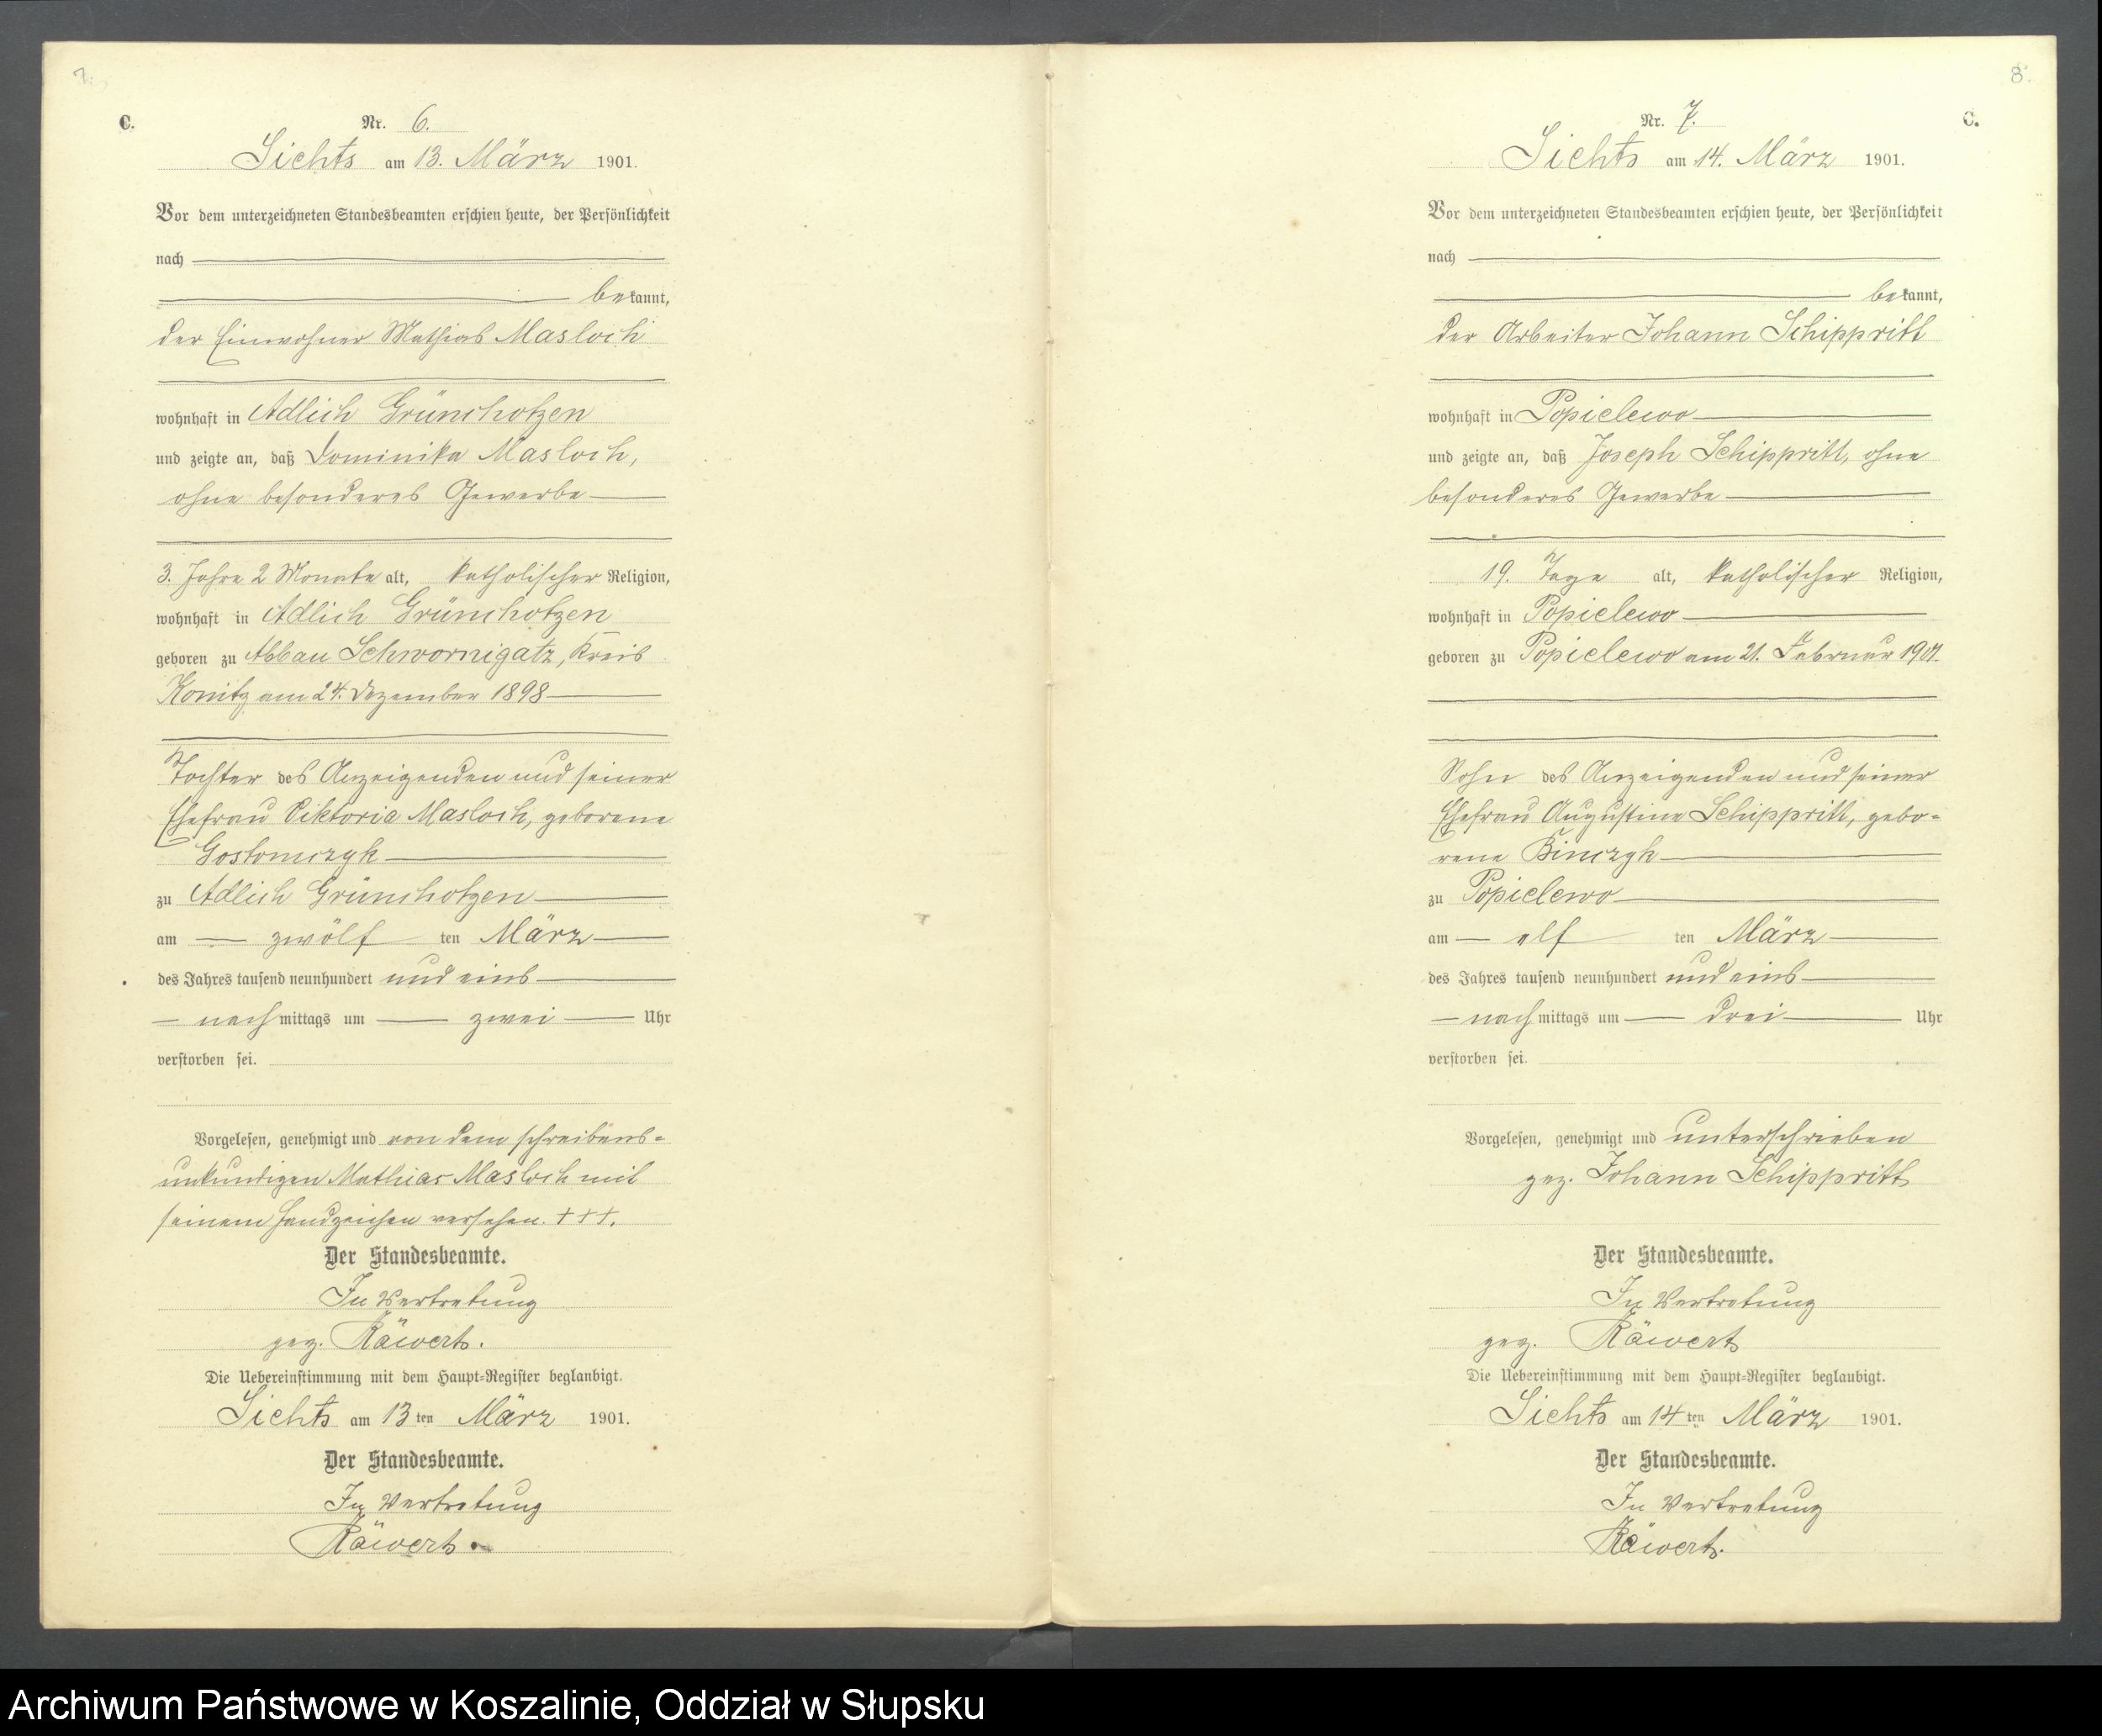 7.
C.
Nr. 6.
Sichts am 13. März 1901.
Vor dem unterzeichneten Standesbeamten erschien heute, der Persönlichkeit
nach
bekannt,
der Einwohner Mathias Masloch
wohnhaft in Adlich Grünchotzen
und zeigte an, daß Dominika Masloch,
ohne besonderes Gewerbe
3. Jahre 2 Monate alt, katholischer Religion,
wohnhaft in Adlich Grünchotzen
geboren zu Abbau Schwornigatz, Kreis
Konitz am 24. Dezember 1898
Tochter des Anzeigenden und seiner
Ehefrau Viktoria Masloch, geborene
Gostomczyk
zu Adlich Grünchotzen
am zwölf ten März
des Jahres tausend neunhundert und eins
nachmittags um zwei Uhr
verstorben sei.
Vorgelesen, genehmigt und von dem schreibens-
unkundigen Mathias Masloch mit
seinem Handzeichen versehen. +++.
Der Standesbeamte.
In Vertretung
gez. Räwert.
Die Uebereinstimmung mit dem Haupt-Register beglaubigt.
Sichts am 13 ten März 1901.
Der Standesbeamte.
In Vertretung
Räwert.
8.
C.
Nr. 7.
Sichts am 14. März 1901.
Vor dem unterzeichneten Standesbeamten erschien heute, der Persönlichkeit
nach
bekannt,
der Arbeiter Johann Schippritt
wohnhaft in Popielewo
und zeigte an, daß Joseph Schippritt, ohne
besonderes Gewerbe
19. Tage alt, katholischer Religion,
wohnhaft in Popielewo
geboren zu Popielewo am 21. Februar 1901.
Sohn des Anzeigenden und seiner
Ehefrau Augustine Schippritt, gebo-
rene Binczyk
zu Popielewo
am elf ten März
des Jahres tausend neunhundert und eins
nachmittags um drei Uhr
verstorben sei.
Vorgelesen, genehmigt und unterschrieben
gez. Johann Schippritt
Der Standesbeamte.
In Vertretung
gez. Räwert
Die Uebereinstimmung mit dem Haupt-Register beglaubigt.
Sichts am 14 ten März 1901.
Der Standesbeamte.
In Vertretung
Räwert.
Archiwum Państwowe w Koszalinie, Oddział w Słupsku